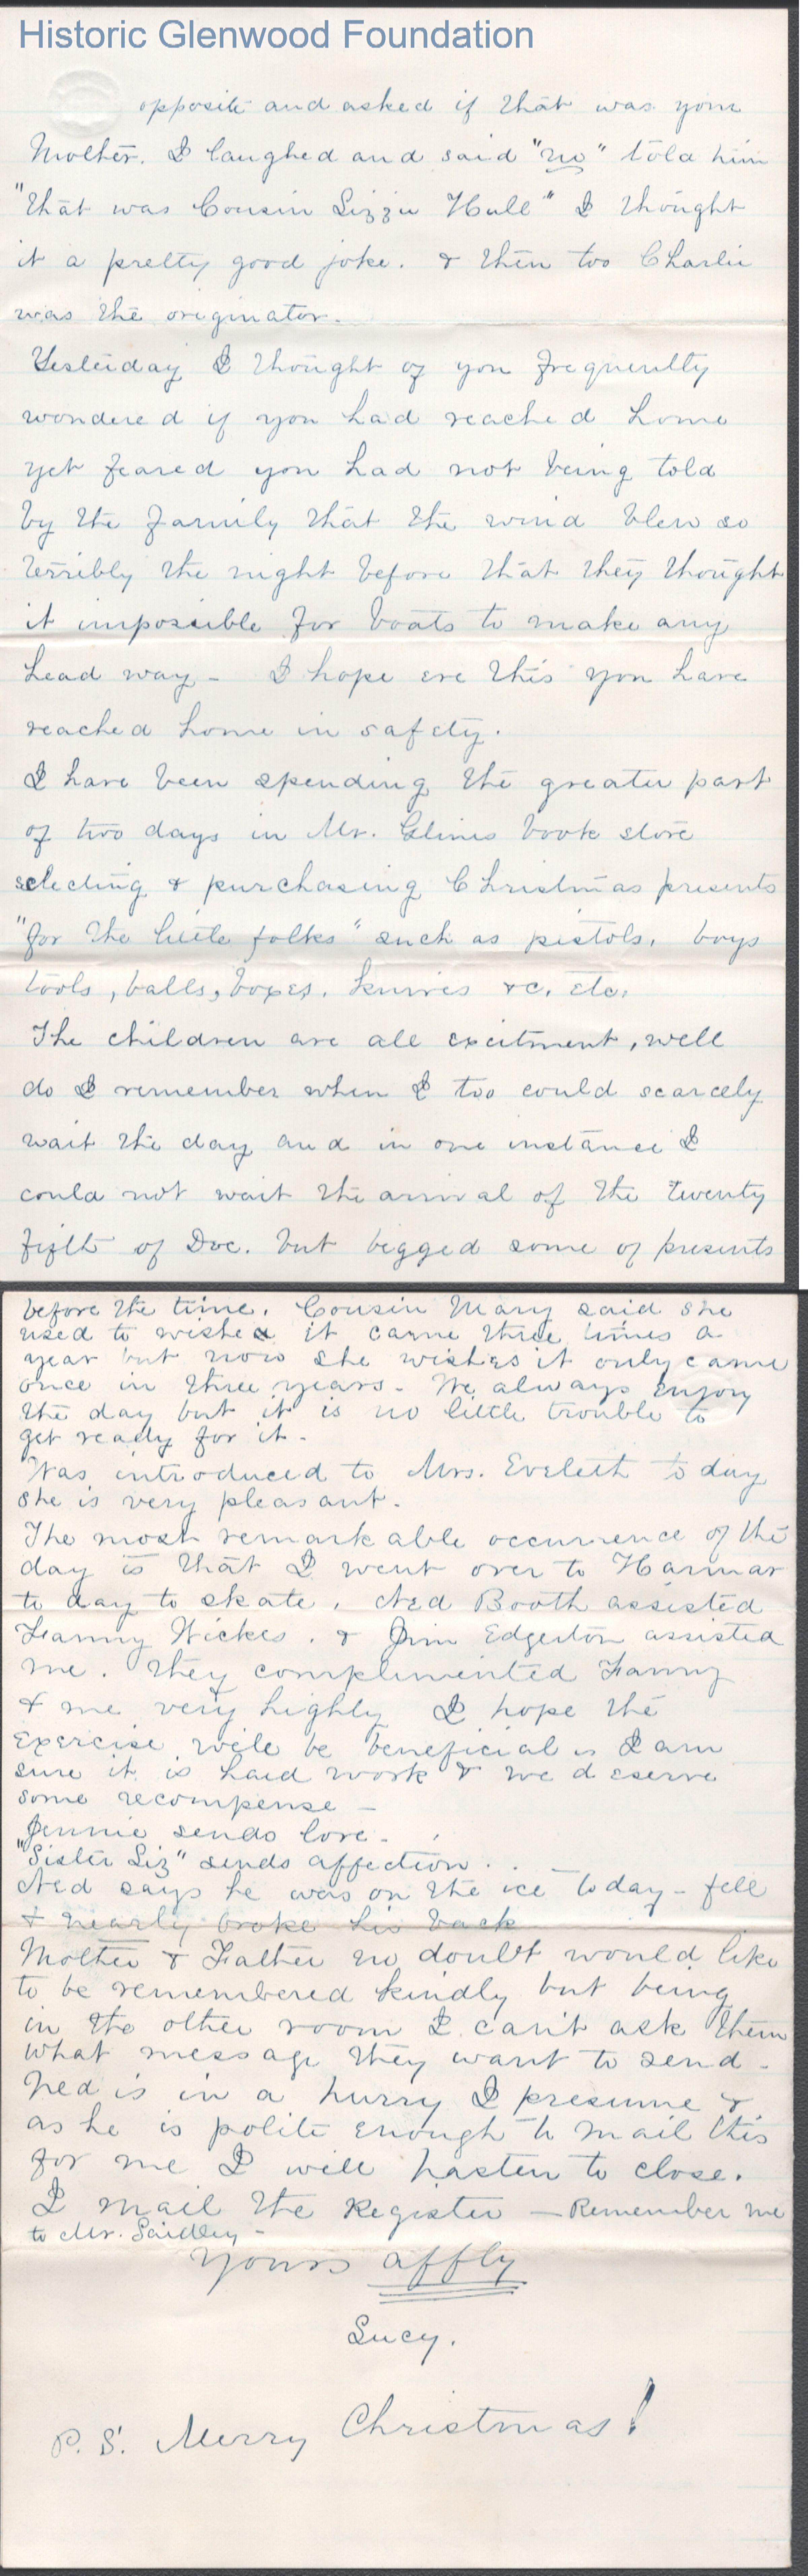 Historic Glenwood Foundation
opposite and asked if that was your
Mother. I laughed and said "no" told him
"that was Cousin Lizzie Hull" I thought
it a pretty good joke. & then too Charlie
was the originator.
Yesterday I thought of you frequently
wondered if you had reached home
yet feared you had not being told
by the family that the wind blew so
terribly the night before that they thought
it impossible for boats to make any
head way - I hope ere this you have
reached home in safety.
I have been spending the greater part
of two days in Mr. Glines book store
selecting & purchasing Christmas presents
"for the little folks" such as pistols, boys
tools, balls, boxes, knives &c. etc.
The children are all excitment, well
do I remember when I too could scarcely
wait the day and in one instance I
could not wait the arrival of the twenty
fifth of Dec. but begged some of presents
before the time. Cousin Mary said she
used to wished it came three times a
year but now she wishes it only came
once in three years. We always enjoy
the day but it is no little trouble to
get ready for it.
Was introduced to Mrs. Eveleth to day
she is very pleasant.
The most remarkable occurrence of the
day is that I went over to Harmar
to day to skate, Ned Booth assisted
Fanny Wickes. & Jim Edgerton assisted
me. They complimented Fanny
& me very highly I hope the
exercise will be beneficial as I am
sure it is hard work & we deserve
some recompense -
Jennie sends love.
"Sister Liz" sends affection.
Ned says he was on the ice today - fell
& nearly broke his back
Mother & Father no doubt would like
to be remembered kindly but being
in the other room I can't ask them
what message they want to send -
Ned is in a hurry I presume &
as he is polite enough to mail this
for me I will hasten to close.
I mail the Register — Remember me
to Mr.
Yours affly
Lucy.
P.S. Merry Christmas!